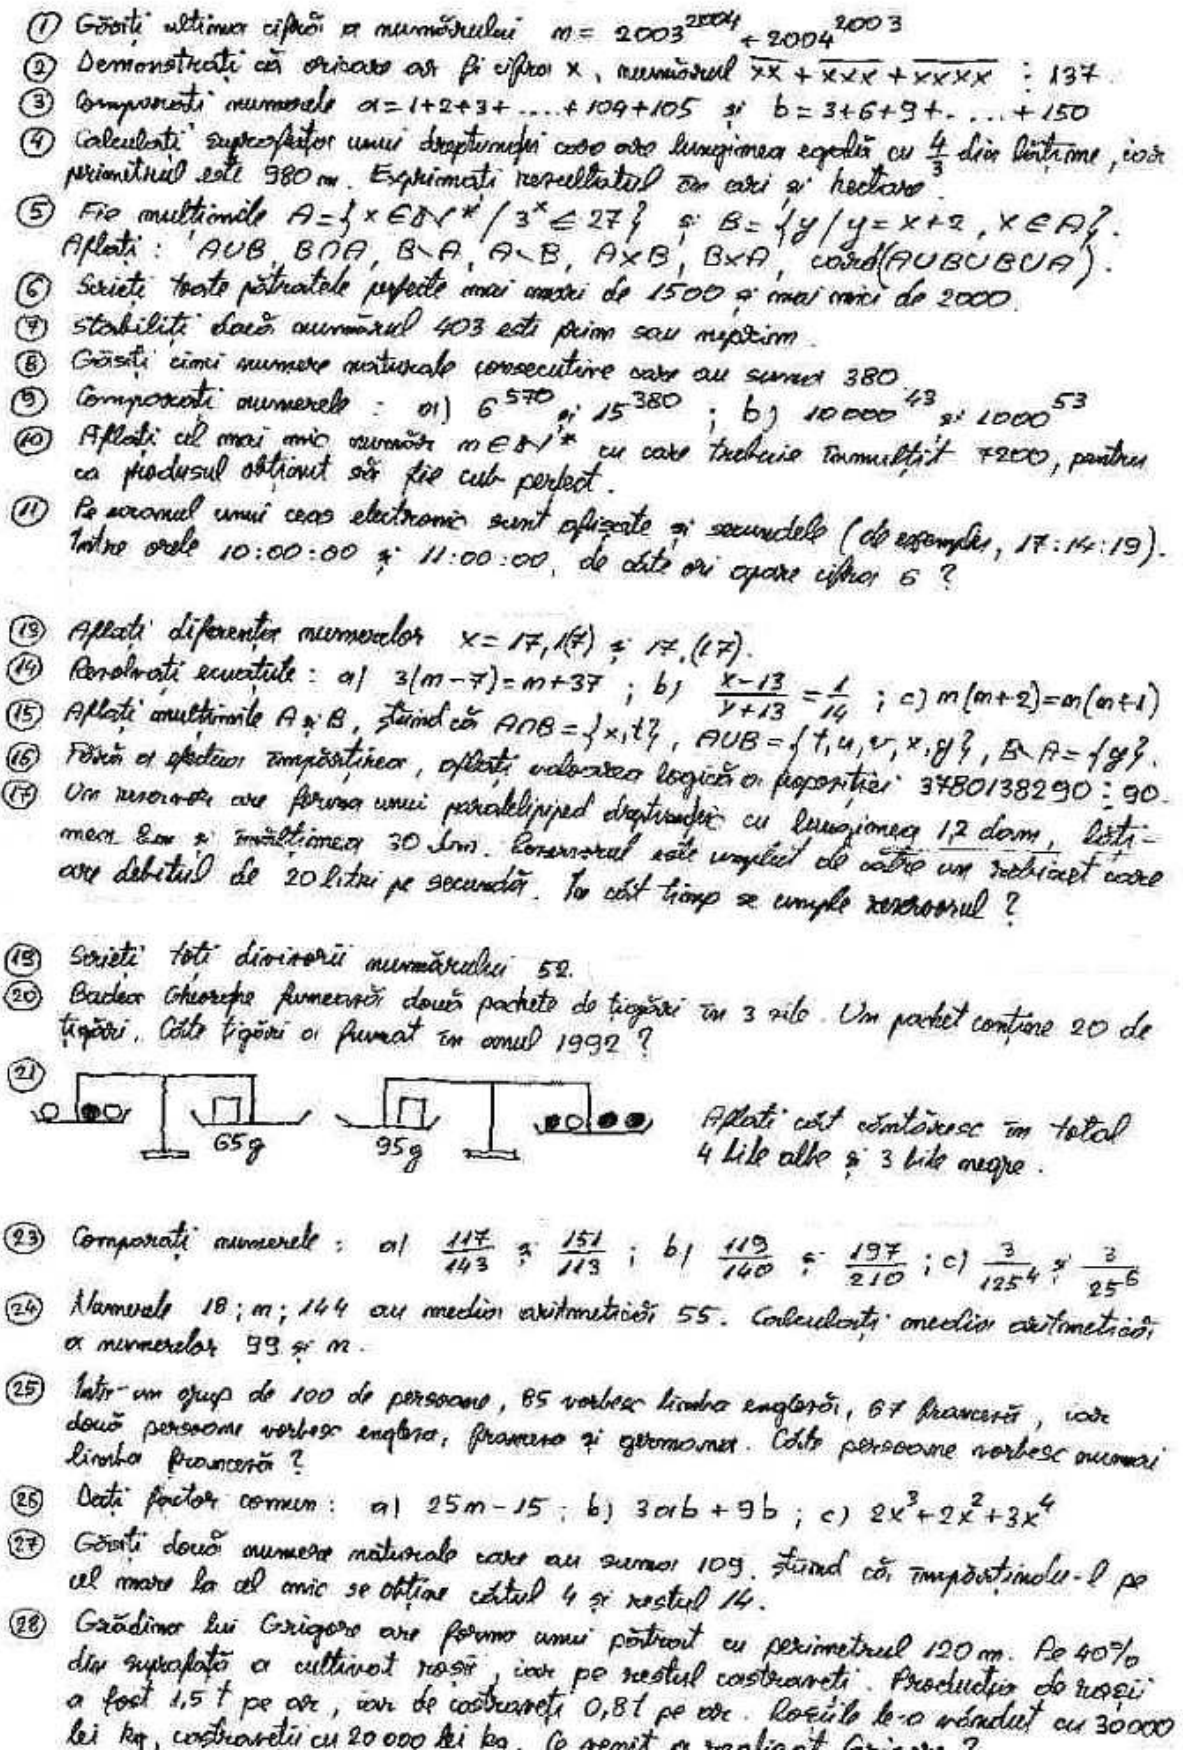 ① Găsiți ultima cifră a numărului n = 2003^2004 + 2004^2003
② Demonstrați că oricare ar fi cifra x, numărul xx + xxx + xxxx ⋮ 137.
③ Comparați numerele a=1+2+3+.....+104+105 și b=3+6+9+.....+150
④ Calculați suprafața unui dreptunghi care are lungimea egală cu 4/3 din lățime, iar
perimetrul este 980 m. Exprimați rezultatul în ari și hectare.
⑤ Fie mulțimile A={x∈N* / 3^x ≤ 27} și B={y / y=x+2, x∈A}.
Aflați: A∪B, B∩A, B\A, A\B, A×B, B×A, card(A∪B∪B∪A).
⑥ Scrieți toate pătratele perfecte mai mari de 1500 și mai mici de 2000.
⑦ Stabiliți dacă numărul 403 este prim sau neprim.
⑧ Găsiți cinci numere naturale consecutive care au suma 380.
⑨ Comparați numerele: a) 6^570 și 15^380 ; b) 10000^43 și 1000^53
⑩ Aflați cel mai mic număr n∈N* cu care trebuie înmulțit 7200, pentru
ca produsul obținut să fie cub perfect.
⑪ Pe ecranul unui ceas electronic sunt afișate și secundele (de exemplu, 17:14:19).
Între orele 10:00:00 și 11:00:00, de câte ori apare cifra 6 ?
⑬ Aflați diferența numerelor x=17,1(7) și 17,(17).
⑭ Rezolvați ecuațiile: a) 3(m-7)=m+37 ; b) x-13/x+13 = 1/14 ; c) m(m+2)=m(m+1)
⑮ Aflați mulțimile A și B, știind că A∩B={x,t}, A∪B={t,u,v,x,y}, B\A={y}.
⑯ Fără a efectua împărțirea, aflați valoarea logică a propoziției 3780138290 ⋮ 90.
⑰ Un rezervor are forma unui paralelipiped dreptunghic cu lungimea 1,2 dam, lăți-
mea și înălțimea 30 dm. Rezervorul este umplut de către un robinet care
are debitul de 20 litri pe secundă. În cât timp se umple rezervorul ?
⑲ Scrieți toți divizorii numărului 52.
⑳ Badea Gheorghe fumează două pachete de țigări în 3 zile. Un pachet conține 20 de
țigări. Câte țigări a fumat în anul 1992 ?
㉑
65g 95g
Aflați cât cântăresc în total
4 bile albe și 3 bile negre.
㉓ Comparați numerele: a) 117/143 și 151/113 ; b) 119/140 și 197/210 ; c) 3/125^4 și 3/25^6
㉔ Numerele 18; n; 144 au media aritmetică 55. Calculați media aritmetică
a numerelor 99 și n.
㉕ Într-un grup de 100 de persoane, 85 vorbesc limba engleză, 67 franceză, iar
două persoane vorbesc engleza, franceza și germana. Câte persoane vorbesc numai
limba franceză ?
㉖ Dați factor comun: a) 25m-15 ; b) 3ab+9b ; c) 2x^3+2x^2+3x^4
㉗ Găsiți două numere naturale care au suma 109, știind că împărțindu-l pe
cel mare la cel mic se obține câtul 4 și restul 14.
㉘ Grădina lui Grigore are forma unui pătrat cu perimetrul 120 m. Pe 40%
din suprafață a cultivat roșii, iar pe restul castraveți. Producția de roșii
a fost 1,5 t pe ar, iar de castraveți 0,8t pe ar. Roșiile le-a vândut cu 30000
lei kg, castraveții cu 20 000 lei kg. Ce venit a realizat Grigore ?